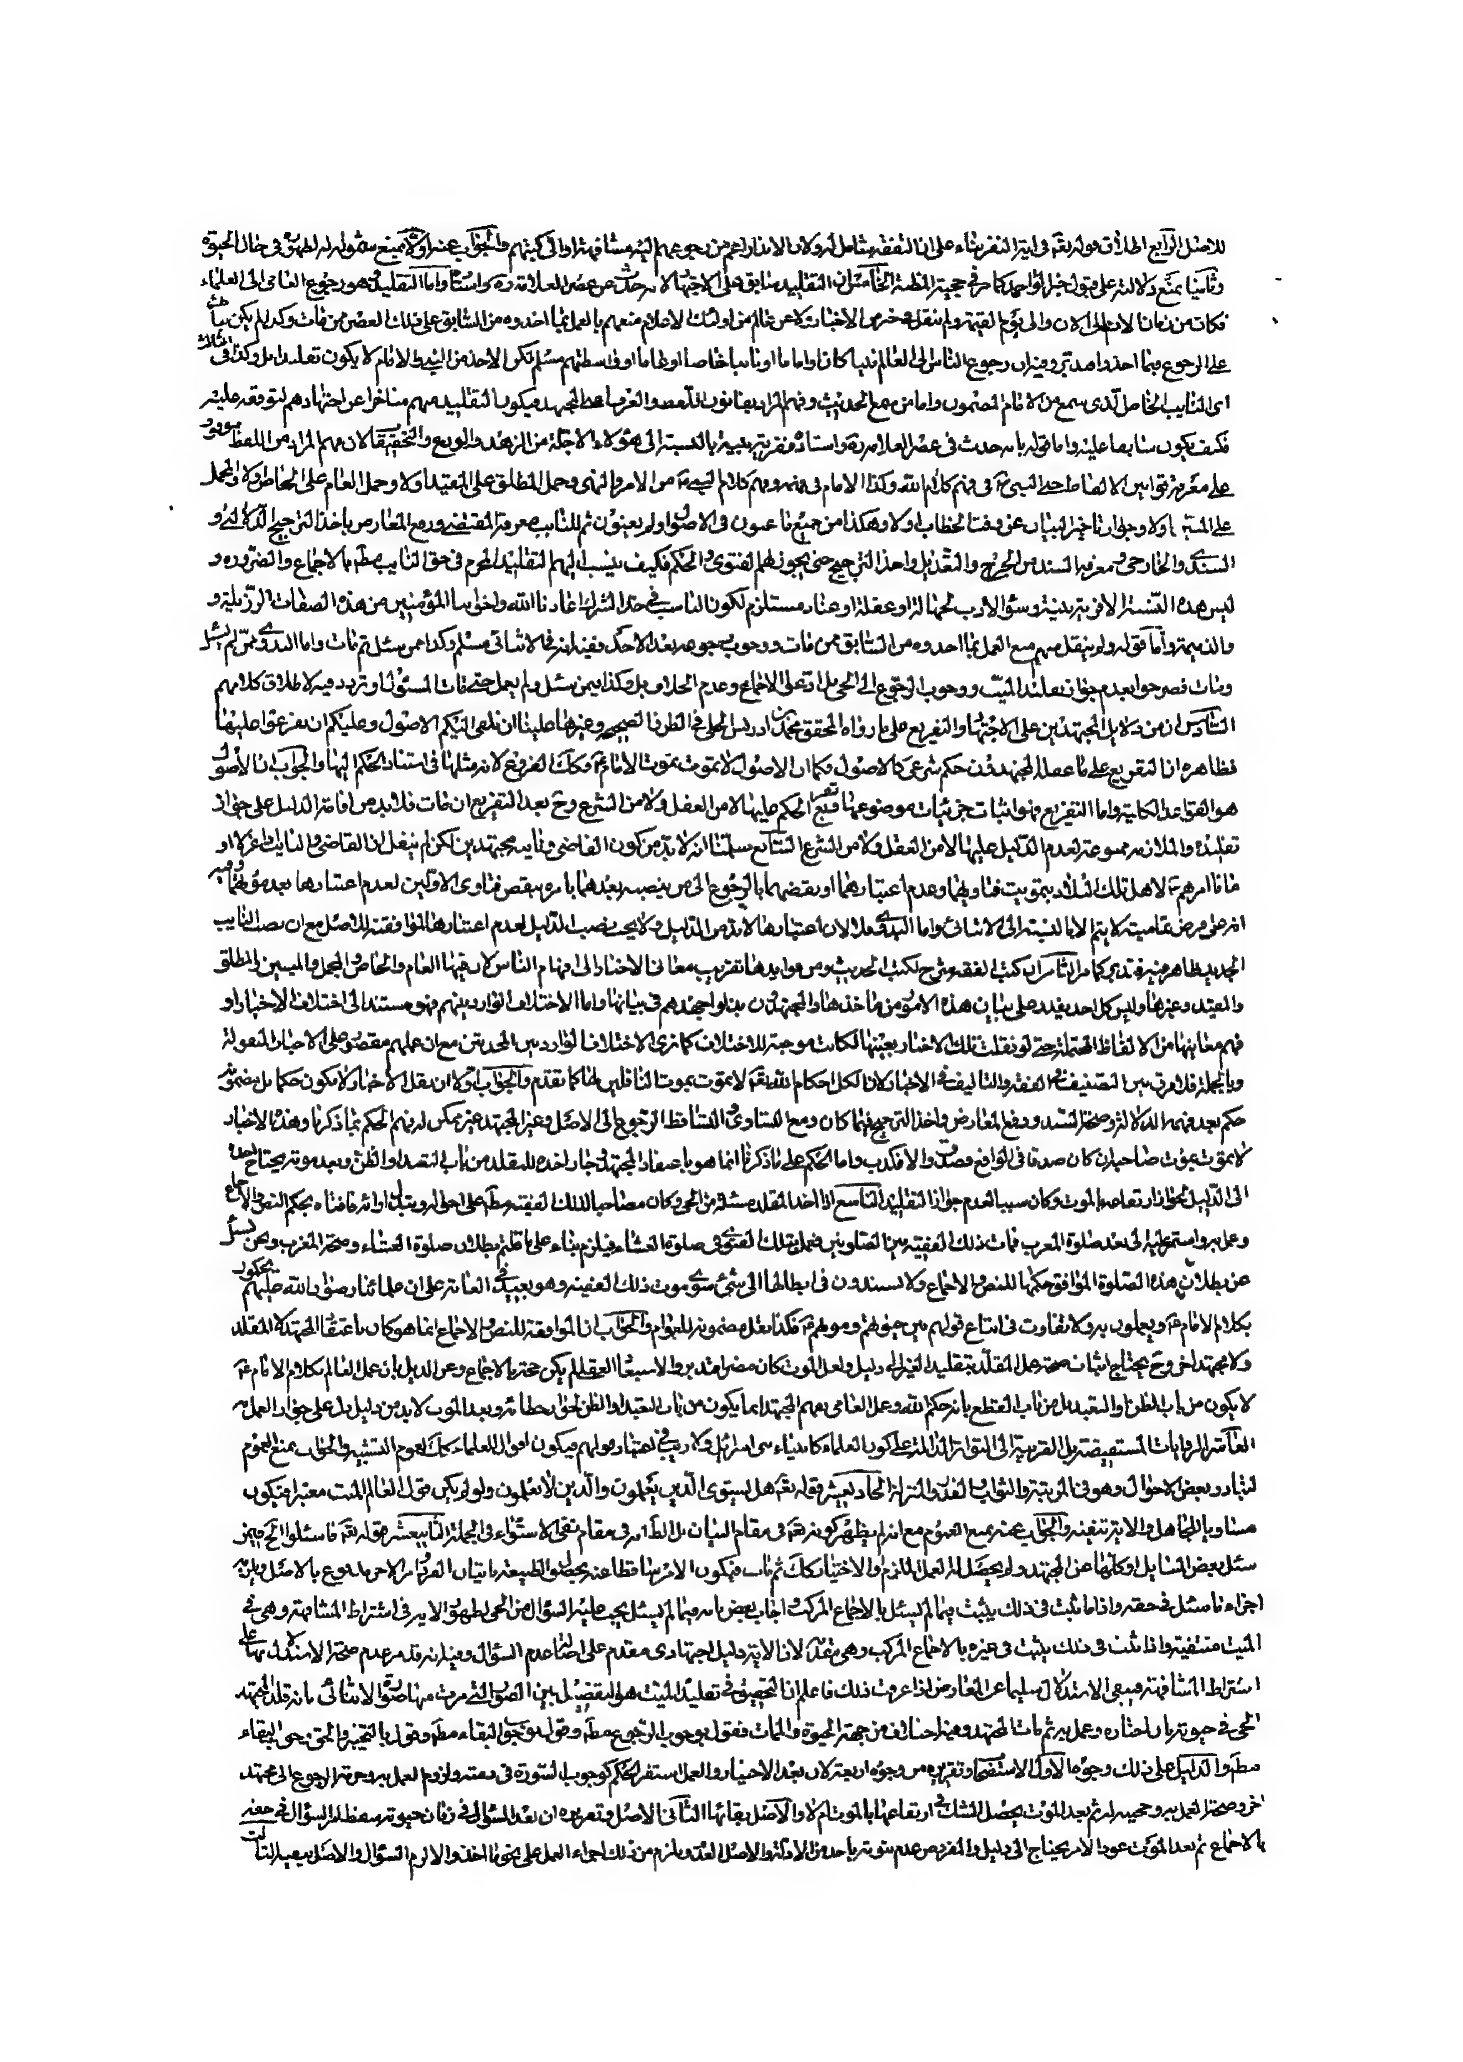 للاصل الرابع اطلاق قوله تعه في اية النفر بناء على ان التفقه شامل له ولان الانذار اعم من رجوعهم اليه مشافهة او الى كتبهم والجواب عنه اولا بمنع شموله له لظهوره في حال الحيوة
وثانيا بمنع دلالته على قبول خبر الواحد كما مر في حجية المظنة الخامس ان التقليد سابق على الاجتهاد لانه حدث من عصر العلامة وه واستاده واما التقليد فهو رجوع العامي الى العلماء
فكان من زماننا الان الى الان والى يوم القيمة ولم ينقل في خبر من الاخبار ولا عن عالم من اولئك الاعلام منعهم بالعمل بما اخذوه من السابق على ذلك العصر ممن مات وكذا لم يكن
على الرجوع فيما اخذوا منه تدبر وفيه ان رجوع الناس الى العالم نبيا كان او اماما او نائبا خاصا او عاما او واسطتهم مسلم لكن الاخذ من النبي والامام لا يكون تقليدا بل وكذا في
اى النايب الخاص الذي سمع من الامام المضمون واما من سمع الحديث وفهم المراد بقانون اللغة والعرف فهو المجتهد فيكون التقليد منهم متاخرا عن اجتهادهم لتوقفه عليه
فكيف يكون سابقا عليه واما قوله بانه حدث في عصر العلامة واستاده ففرية بينة بالنسبة الى هؤلاء الاجلة من الزهد والورع والتحقيق لان فهم المراد من اللفظ موقوف
على معرفة قوانين الالفاظ حتى النبي ص في فهم كلام الله وكذا الامام في فهمه وفهم كلام النبي ص من الامر والنهى وحمل المطلق على المقيد اولا وحمل العام على الخاص اولا والمجمل
على المبين اولا وجواز تاخير البيان عن وقت الخطاب اولا وهكذا من جميع ما عنون في الاصول او لم يعنون ثم للنايب معرفة المقتضى ورفع المعارض باخذ الترجيح الدلالتى و
السندى والخارجى ومعرفة السند من الجرح والتعديل واخذ الترجيح حتى يجوز لهم الفتوى والحكم فكيف ينسب اليهم التقليد المحرم في حق النايب مطه بالاجماع والضرورة و
ليس هذه النسبة الا فرية بينة وسوء الادب لجهالة او غفلة او عناد مستلزم لكون الناسب في حد الشرك اعاذنا الله واخواننا المؤمنين من هذه الصفات الرزيلة و
والذميمة واما قوله ولم ينقل منهم منع العمل بما اخذوه من السابق ممن مات ووجوب رجوعه بعد الاخذ ففيه انه في الاثنائى مسلم وكذا ممن سئل ثم مات واما البدوى ممن لم يسئل
ومات فصرحوا بعدم جواز تقليد الميت ووجوب الرجوع الى الحى بل ادعى الاجماع وعدم الخلاف بل وكذا فيمن سئل ولم يعمل حتى مات المسئول او تردد فيه لاطلاق كلامهم
السادس ان من دلايل المجتهدين على الاجتهاد والتفريع على ما رواه المحقق محمد بن ادريس الحلى في الطرق الصحيحة وغيرها علينا ان نلقى اليكم الاصول وعليكم ان تفرعوا عليها
فظاهره ان التفريع على ما حصل للمجتهدين حكم شرعى كالاصول فكما ان الاصول لا يموت بموت الامام ع فكك الفروع لانه مثلها في استناد الحكم اليها والجواب ان الاصول
هو القواعد الكلية واما التفريع فهو اثبات جزئيات موضوعها وتبع الحكم عليها لا من العقل ولا من الشرع وح بعد التفريع ان مات فلا بد من اقامة الدليل على جواز
تقليده والملازمة ممنوعة لعدم الدليل عليها لا من العقل ولا من الشرع السابع سلمنا انه لا بد من كون القاضى ونايبه مجتهدين لكن لم ينقل ان القاضى والنايب او غيرهما او
ماتا امرهم ع لاهل تلك البلاد بتمويت فتاويهما وعدم اعتبارهما او نقضهما بالرجوع الى من ينصبه بعدهما بامره بنقض فتاوى الاولين لعدم اعتبارها بعد موتهما وفيه
انه على فرض تماميته لا يتم الا بالنسبة الى الاثنائى واما البدوى فلا لان اعتبارها لا بد من الدليل ولا يجب نصب الدليل لعدم اعتبارها لموافقته للاصل مع ان نصب النايب
الجديد ظاهر فيه فتدبر كما مر الثامن ان كتب الفقه شرح لكتب الحديث ومن فوايدها تقريب معانى الاخبار الى افهام الناس لان فيها العام والخاص والمجمل والمبين والمطلق
والمقيد وغيرها وليس كل احد يقدر على بيان هذه الامور من ماخذها والمجتهدون بذلوا جهدهم في بيانها واما الاختلاف الوارد بينهم فهو مستند الى اختلاف الاخبار او
فهم معانيها من الالفاظ المحتملة حتى لو نقلت تلك الاخبار بعينها لكانت موجبة للاختلاف كما ترى الاختلاف الوارد بين المحدثين مع ان عملهم مقصور على الاخبار المنقولة
وبالجملة فلا فرق بين التصنيف في الفقه والتاليف في الاخبار لان الكل احكام الله تعه لا يموت بموت الناقلين لها كما تقدم والجواب اولا ان نقل الاخبار لا يكون حكما بل مضمونه
حكم بعد فهم الدلالة وصحة السند ودفع المعارض واخذ الترجيح فيما كان ومع التساوى والتساقط الرجوع الى الاصل وغير المجتهد غير ممكن له فهم الحكم بما ذكرنا وهذه الاخبار
لا يموت بموت صاحبه ان كان صدقا في الواقع فصدق والا فكذب واما الحكم على ما ذكرنا انما هو باعتقاد المجتهد في جواز اخذه للمقلد من باب التعبد او الظن وبعد موته يحتاج اخذه
الى الدليل لجواز ارتفاعه بالموت وكان سببا لعدم جواز التقليد التاسع اذا اخذ المقلد مسئلة من الحى وكان مصاحبا لذلك الفقيه مطلعا على احواله وبقبل او اثر مافتاه بحكم النص والاجماع
وعمل به واستمر عليه الى بعد صلوة المغرب فمات ذلك الفقيه بين الصلوتين فعمل بتلك الفتوى في صلوة العشاء فيلزم بناء على ما قلتم بطلان صلوة العشاء وصحة المغرب ونحن نسئل
عن بطلان هذه الصلوة الموافق حكمها للنص والاجماع ولا يستندون في ابطالها الى شئ سوى موت ذلك الفقيه وهو بعيد في الغاية على ان علمائنا رضوان الله عليهم يحكون
بكلام الامام ع ويعملون به ولا تفاوت في اتباع قولهم بين حيوتهم وموتهم ع فكذا نقل مضمونه للعوام والجواب ان الموافقة للنص والاجماع انما هو كان باعتقاد المجتهد لا المقلد
ولا مجتهد اخر وح يحتاج اثبات صحة عمل المقلد بتقليد الغير الى دليل ولعل الموت كان مضرا فتدبر والاستبعاد العقلى لم يكن حجة بالاجماع وعن الدليل بان عمل العالم بكلام الامام ع
لا يكون من باب الظن او التعبد بل من باب القطع بانه حكم الله وعمل العامى بفهم المجتهد انما يكون من باب التعبد او الظن لجواز خطائه وبعد الموت لا بد من دليل يدل على جواز العمل به
العاشر الروايات المستفيضة بل القريبة الى التواتر الدالة على كون العلماء كانبياء بنى اسرائيل ولا ريب في اعتبار قولهم فيكون اقوال العلماء كك لعموم التشبيه والجواب بمنع العموم
لتبادر بعض الاحوال وهو في المرتبة والثواب والقدر والمنزلة الحاديعشر قوله تعه هل يستوى الذين يعلمون والذين لا يعلمون ولو لم يكن قول العالم الميت معتبرا فيكون
مساويا للجاهل والاية تنفيه والجواب عنه بمنع العموم مع انه لم يظهر كونه تعه في مقام البيان بل الظاهر انه في مقام نفى الاستواء في الجملة الثانيعشر قوله تعه فاسئلوا الخ فيمن
سئل بعض المسايل او كلها عن المجتهد ولم يحصل له العمل اللازم والاختيار كك ثم مات فيكون الامر ساقطا عنه بحصول الطبيعة باتيان الفرد والامر الاخر مدفوع بالاصل ويلزمه
اجزاء ما سئل في حقه واذا ثبت في ذلك يثبت فيما لم يسئل بالاجماع المركب واجاب بعض بانه فيما لم يسئل يجب عليه السؤال من الحى لظهور الاية في اشتراط المشافهة وهى في
الميت منتفية واذا ثبت في ذلك يثبت في غيره بالاجماع المركب وهى مقدمة لان الاية دليل اجتهادى مقدم على اصالة عدم السؤال وفيه انه قد مر عدم صحة الاستدلال بها على
اشتراط المشافهة فيبقى الاستدلال سليما عن المعارض اذا عرفت ذلك فاعلم ان التحقيق في تقليد الميت هو التفصيل بين الصور التى مرت منها صورة الاثنائى بانه قلد المجتهد
الحى في حيوته بان اختاره وعمل به ثم مات المجتهد وفيه اختلف من جهة الحيوة والممات فقول بوجوب الرجوع مطه وقول بوجوب البقاء مطه وقول بالتخيير والحق وجوب البقاء
مطه والدليل على ذلك وجوه الاول الاستصحاب وتقريره من وجوه اربعة لان بعد الاختيار والعمل استقر الحكم كوجوب السورة في ذمته ولزوم العمل به وحرمة الرجوع الى مجتهد
اخر وصحة العمل به وحجيته له ثم بعد الموت يحصل الشك في ارتفاعها بالموت ام لا والاصل بقائها الثانى الاصل وتقريره ان بعد السؤال في زمان حيوته سقط له السؤال في حقه
بالاجماع ثم بعد الموت عود الامر يحتاج الى دليل والمفروض عدم ثبوته باحد من الادلة والاصل العدم ويلزم من ذلك اجراء العمل على نحو ما اخذ والا لزم السؤال والاصل ينفيه الثالث